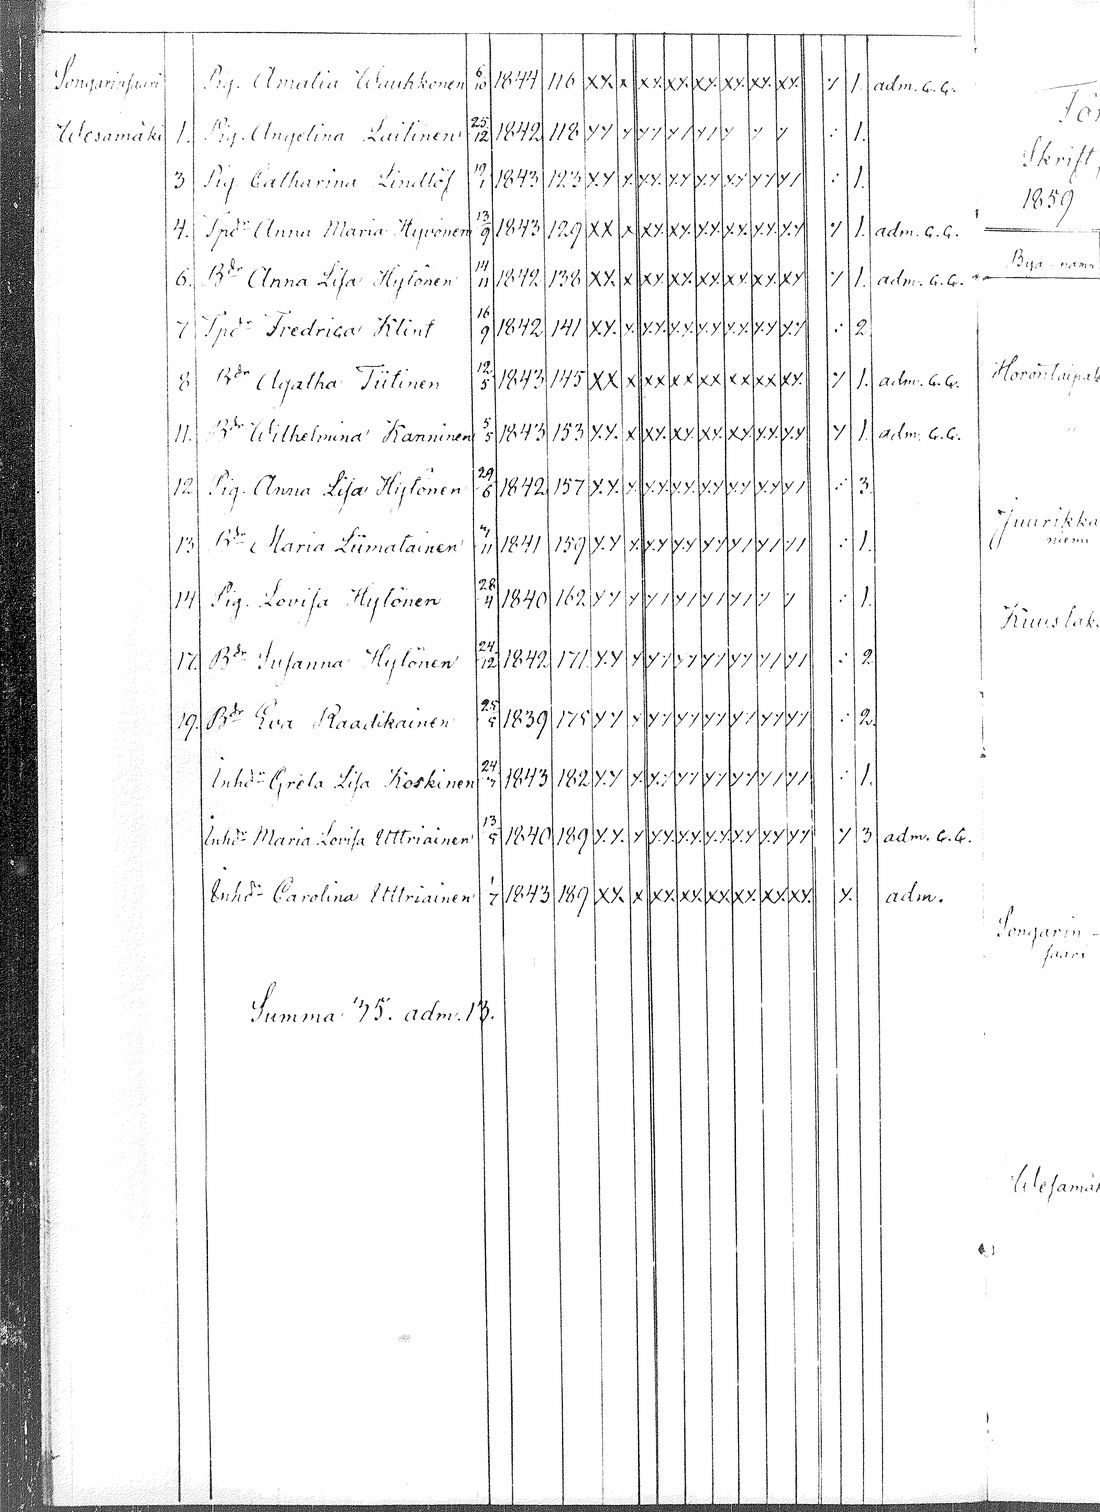 Songarinsaari Pig. Amalia Wauhkonen 6/10 1844 116 XX. x xx. xx. xx. xx. xx. xx. y 1. adm. G. G.
Wesamäki 1. Pig. Angelina Laitinen 25/12 1842 118 yy y y/ y/ y/ y y y : 1.
3 Pig. Catharina Lindlöf 19/1 1843 123 y.y y. y.y. y.y. y.y. y.y y.y y/ : 1.
4. Tpdr Anna Maria Hyvönen 13/9 1843 129 XX x xx. xx. xx. xx. xx. x.y y 1. adm. G. G.
6. Bdr Anna Lisa Hytönen 14/11 1842 138 XX. x. xx. xx. xx. xx. xx. xy y 1. adm. G. G.
7 Tpdr Fredrica Klint 16/9 1842 141 XX. x. x.y. y.y. y.y. x.y. x.y y.y : 2
8 Bdr Agatha Tiitinen 12/5 1843 145 XX x xx xx xx xx xx xx. y 1. adm. G. G.
11. Bdr Wilhelmina Kanninen 5/5 1843 153 y.y. x xx. xx. xx. xx. y.y. y.y y 1. adm. G. G.
12 Pig. Anna Lisa Hytönen 29/6 1842 157 y.y. y y.y. y.y. y.y. y.y y.y y/ : 3.
13 Bdr Maria Liimatainen 7/11 1841 159 y.y x y.y y.y y.y y/ y/ y/ : 1.
14 Pig. Lovisa Hytönen 28/4 1840 162 yy y y/ y/ y/ y/ y y : 1.
17. Bdr Susanna Hytönen 24/12 1842 171. y.y y yy yy yy yy y/ y/ : 2
19. Bdr Eva Raadikainen 25/5 1839 175 yy y yy yy yy yy yy yy : 2.
Inhdr Greta Lisa Koskinen 24/7 1843 182 y.y y y.y yy yy yy y/ y/ : 1.
Inhdr Maria Lovisa Uttriainen 13/5 1840 189 y.y. y y.y. y.y. y.y. y.y. y.y yy y 3 adm. G. G.
Inhdr Carolina Uttriainen 1/7 1843 189 XX. x xx. xx. xx. xx. xx. xx. y. adm.
Summa 35. adm. 13.
För
Skrift
1859
Bya-namn
Horontaipal
Juurikka
niemi
Kuuslaks
Songarin-
saari
Wesamäk